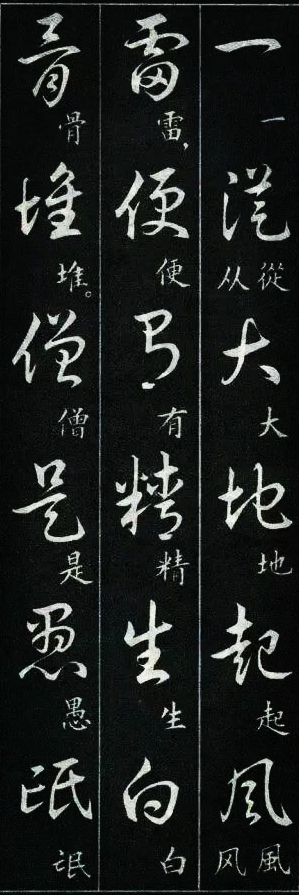 一從大地起風
一 从 從 大 地 起 风 風
雷便有精生白
雷, 便 有 精 生 白
骨堆僧是愚氓
骨 堆。 僧 是 愚 氓